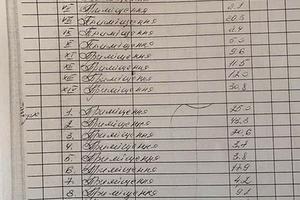 VII Приміщення 2.1
VIII Приміщення 20.5
IX Приміщення 2.4
X Приміщення 5.3
XI Приміщення 9.6
XII Приміщення 11.5
XIII Приміщення 12.0
XIV Приміщення 30.8
1. Приміщення 25.3
2. Приміщення
3. Приміщення
4. Приміщення 3.7
5. Приміщення 3.8
6. Приміщення 17.9
7. Приміщення 4.2
8. Приміщення 9.1